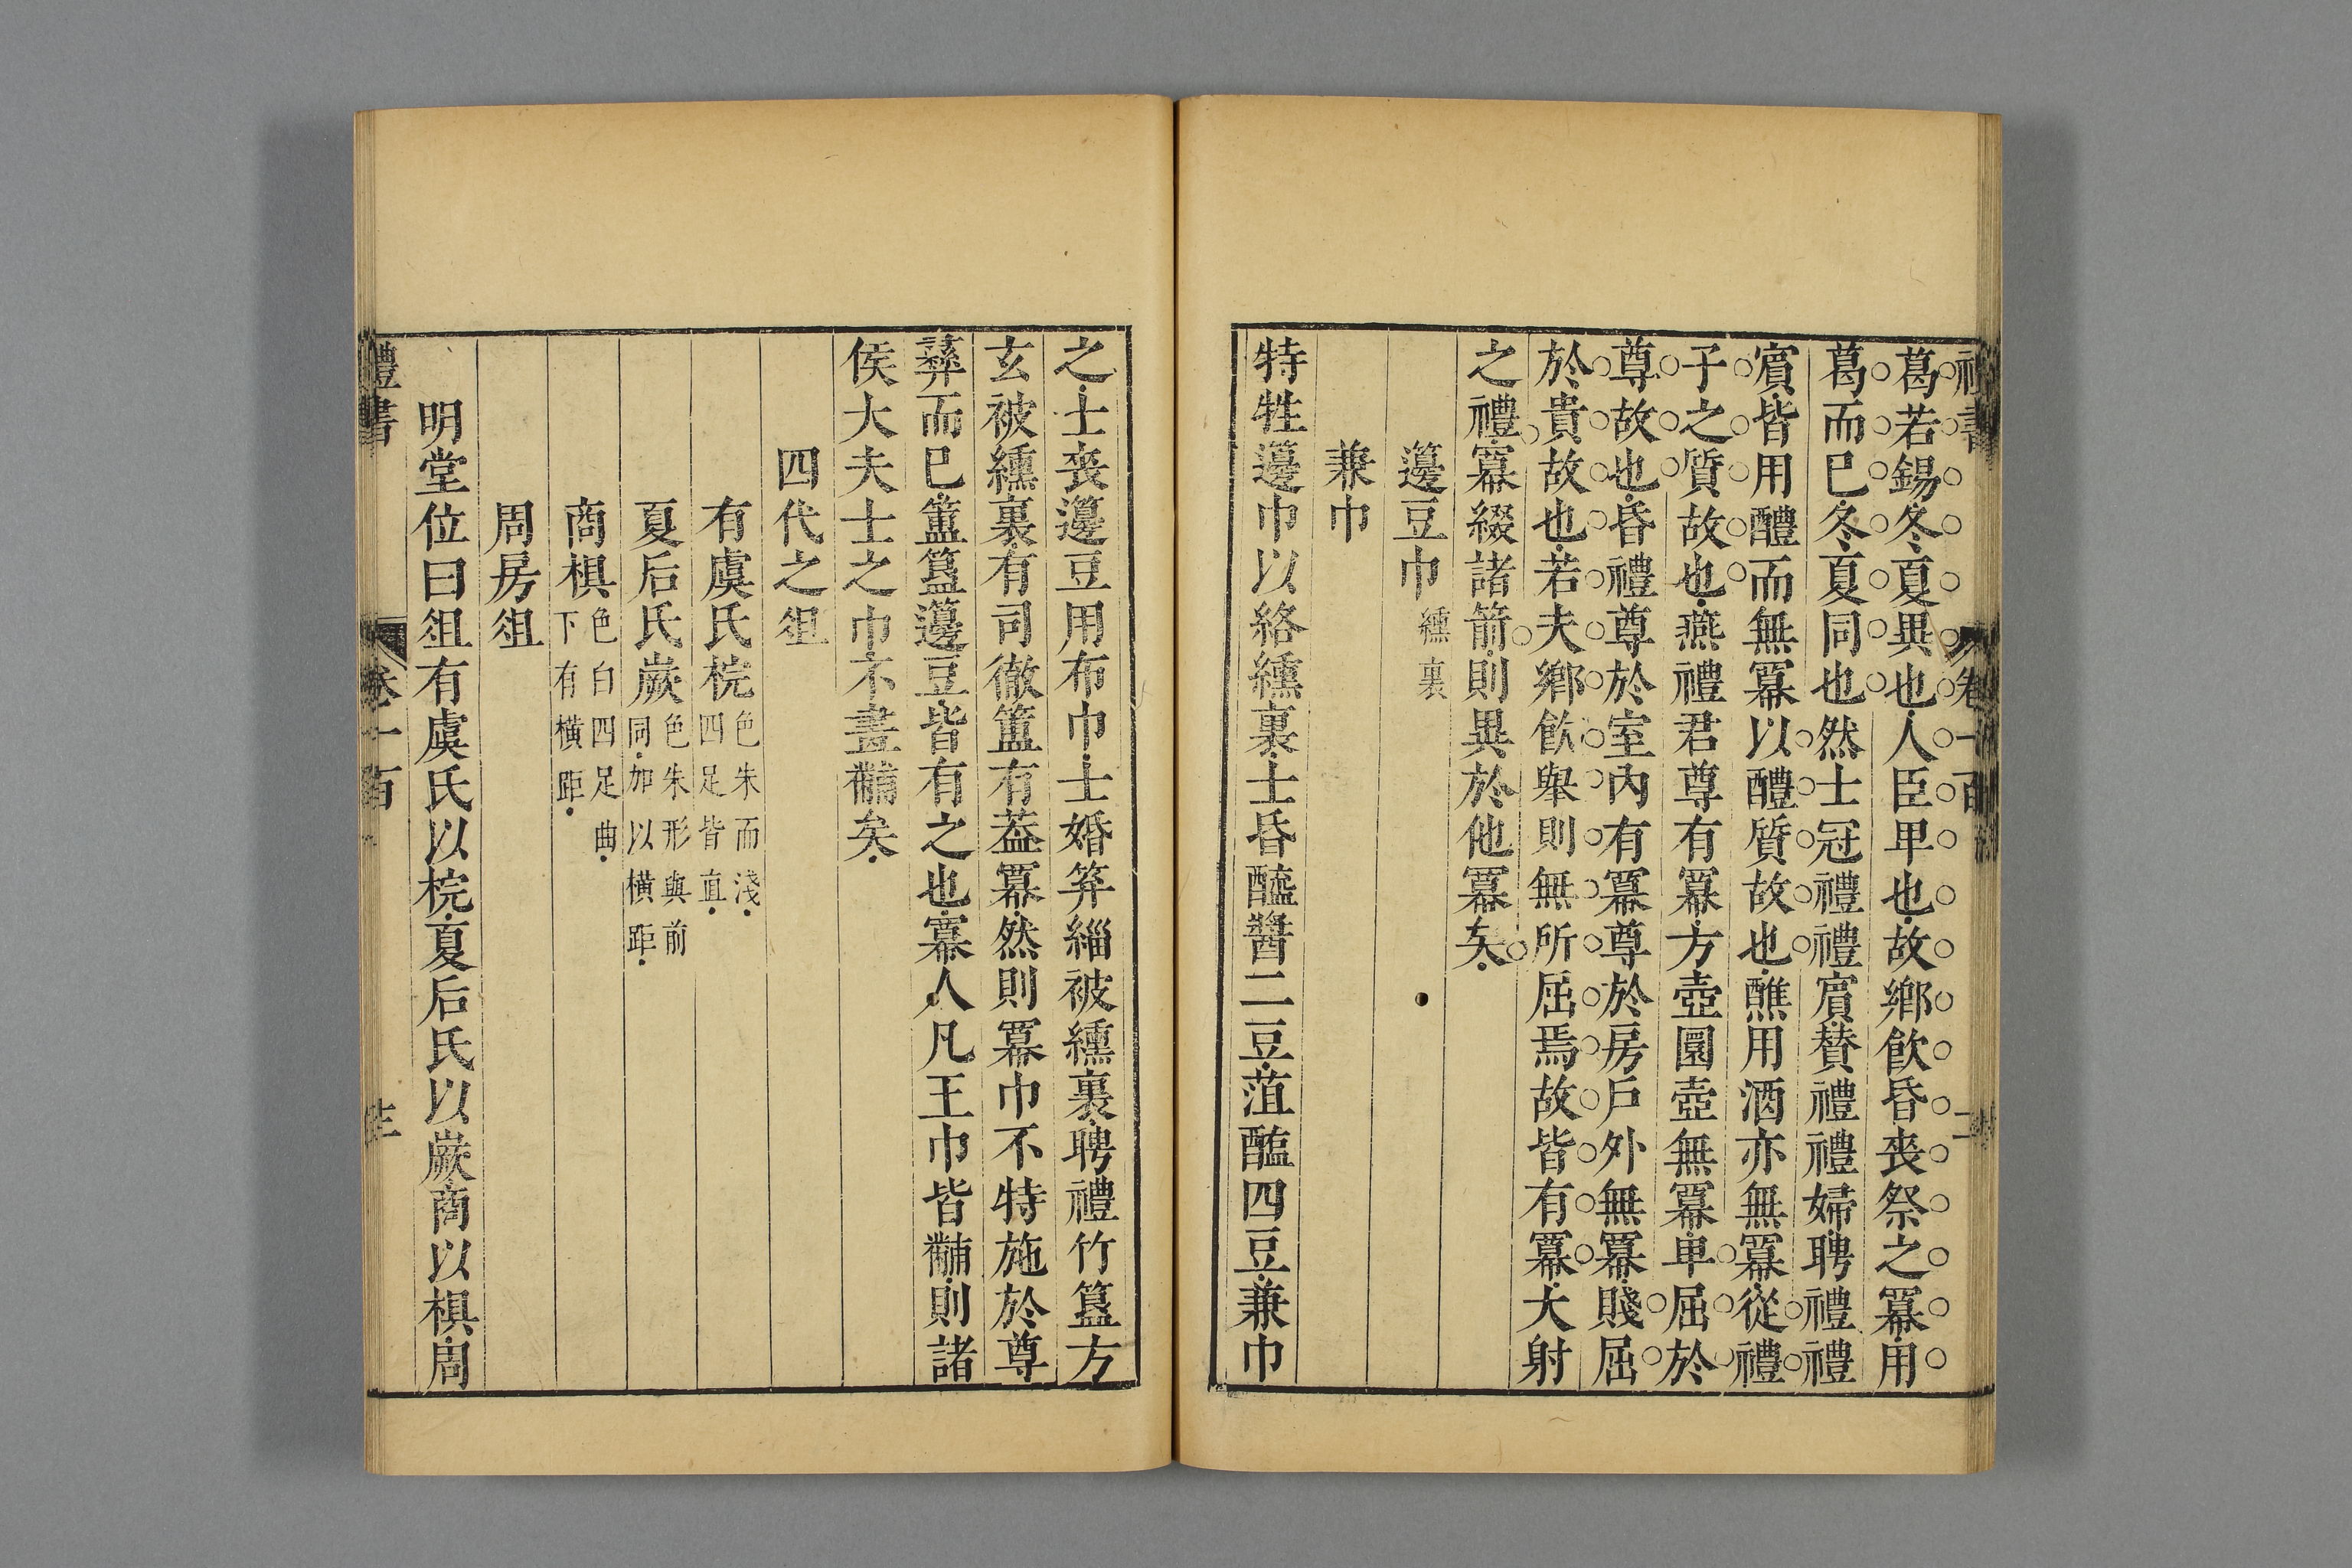 禮書 卷一百
葛若錫冬夏異也人臣卑也故鄉飲昏喪祭之冪用
葛而已冬夏同也然士冠禮禮賓贊禮禮婦聘禮禮
賓皆用醴而無冪以醴質故也醮用酒亦無冪從禮
子之質故也燕禮君尊有冪方壺圜壺無冪卑屈於
尊故也昏禮尊於室內有冪尊於房戶外無冪賤屈
於貴故也若夫鄉飲舉則無所屈焉故皆有冪大射
之禮冪綴諸箭則異於他冪矣
籩豆巾纁裏
兼巾
特牲籩巾以綌纁裏士昏醯醬二豆菹醢四豆兼巾
之士喪籩豆用布巾士婚笲緇被纁裏聘禮竹簋方
玄被纁裏有司徹簠有蓋冪然則冪巾不特施於尊
彝而已簠簋籩豆皆有之也冪人凡王巾皆黼則諸
侯大夫士之巾不畫黼矣
四代之俎
有虞氏梡色朱而淺四足皆直
夏后氏嶡色朱形與前同加以橫距
商椇色白四足曲下有橫距
周房俎
明堂位曰俎有虞氏以梡夏后氏以嶡商以椇周
禮書 卷一百